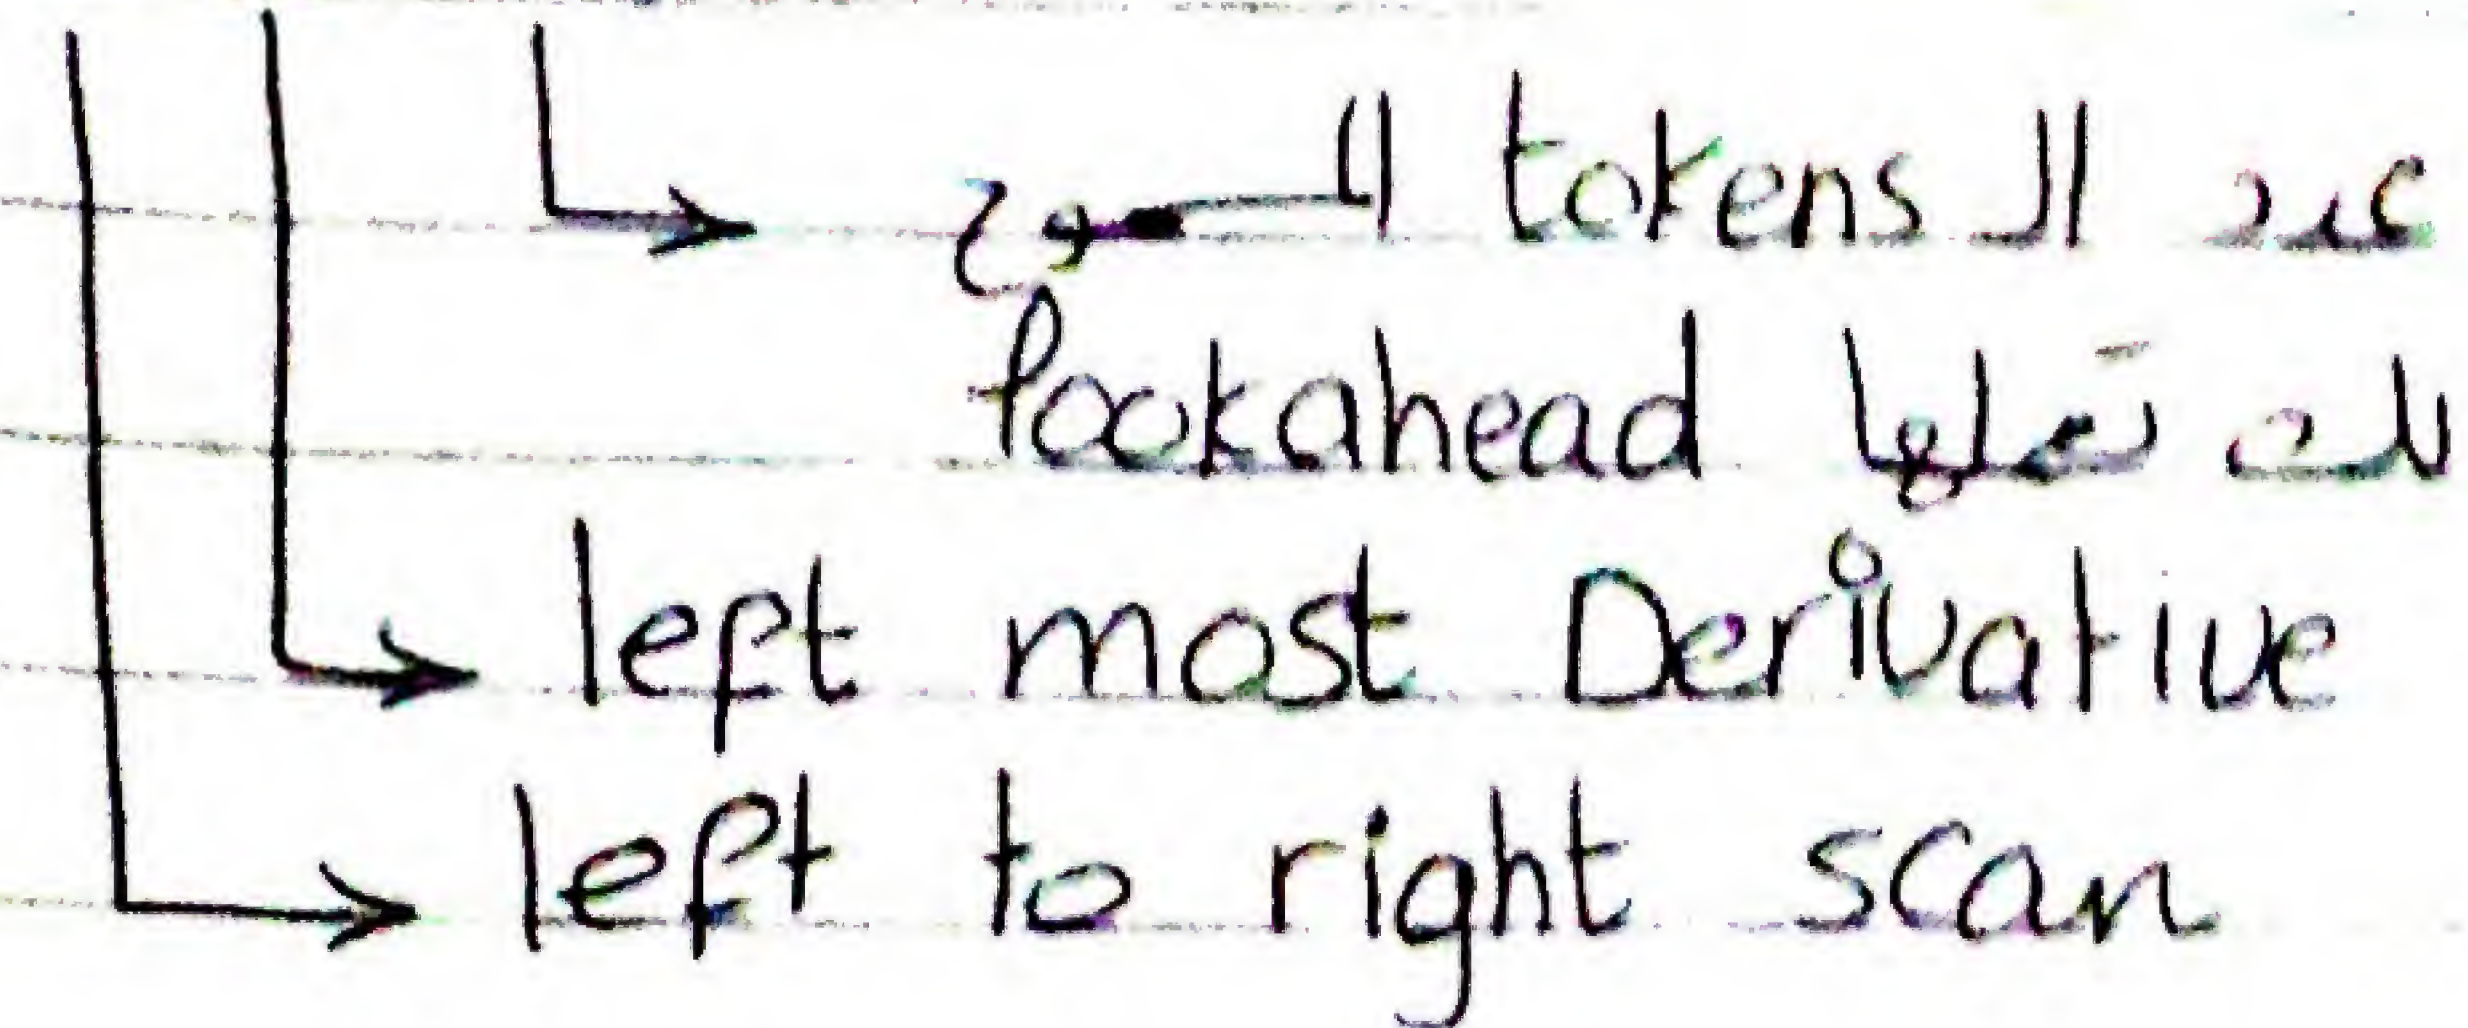 عدد ال tokens المسموح
تعملها lookahead
left most Derivative
left to right scan